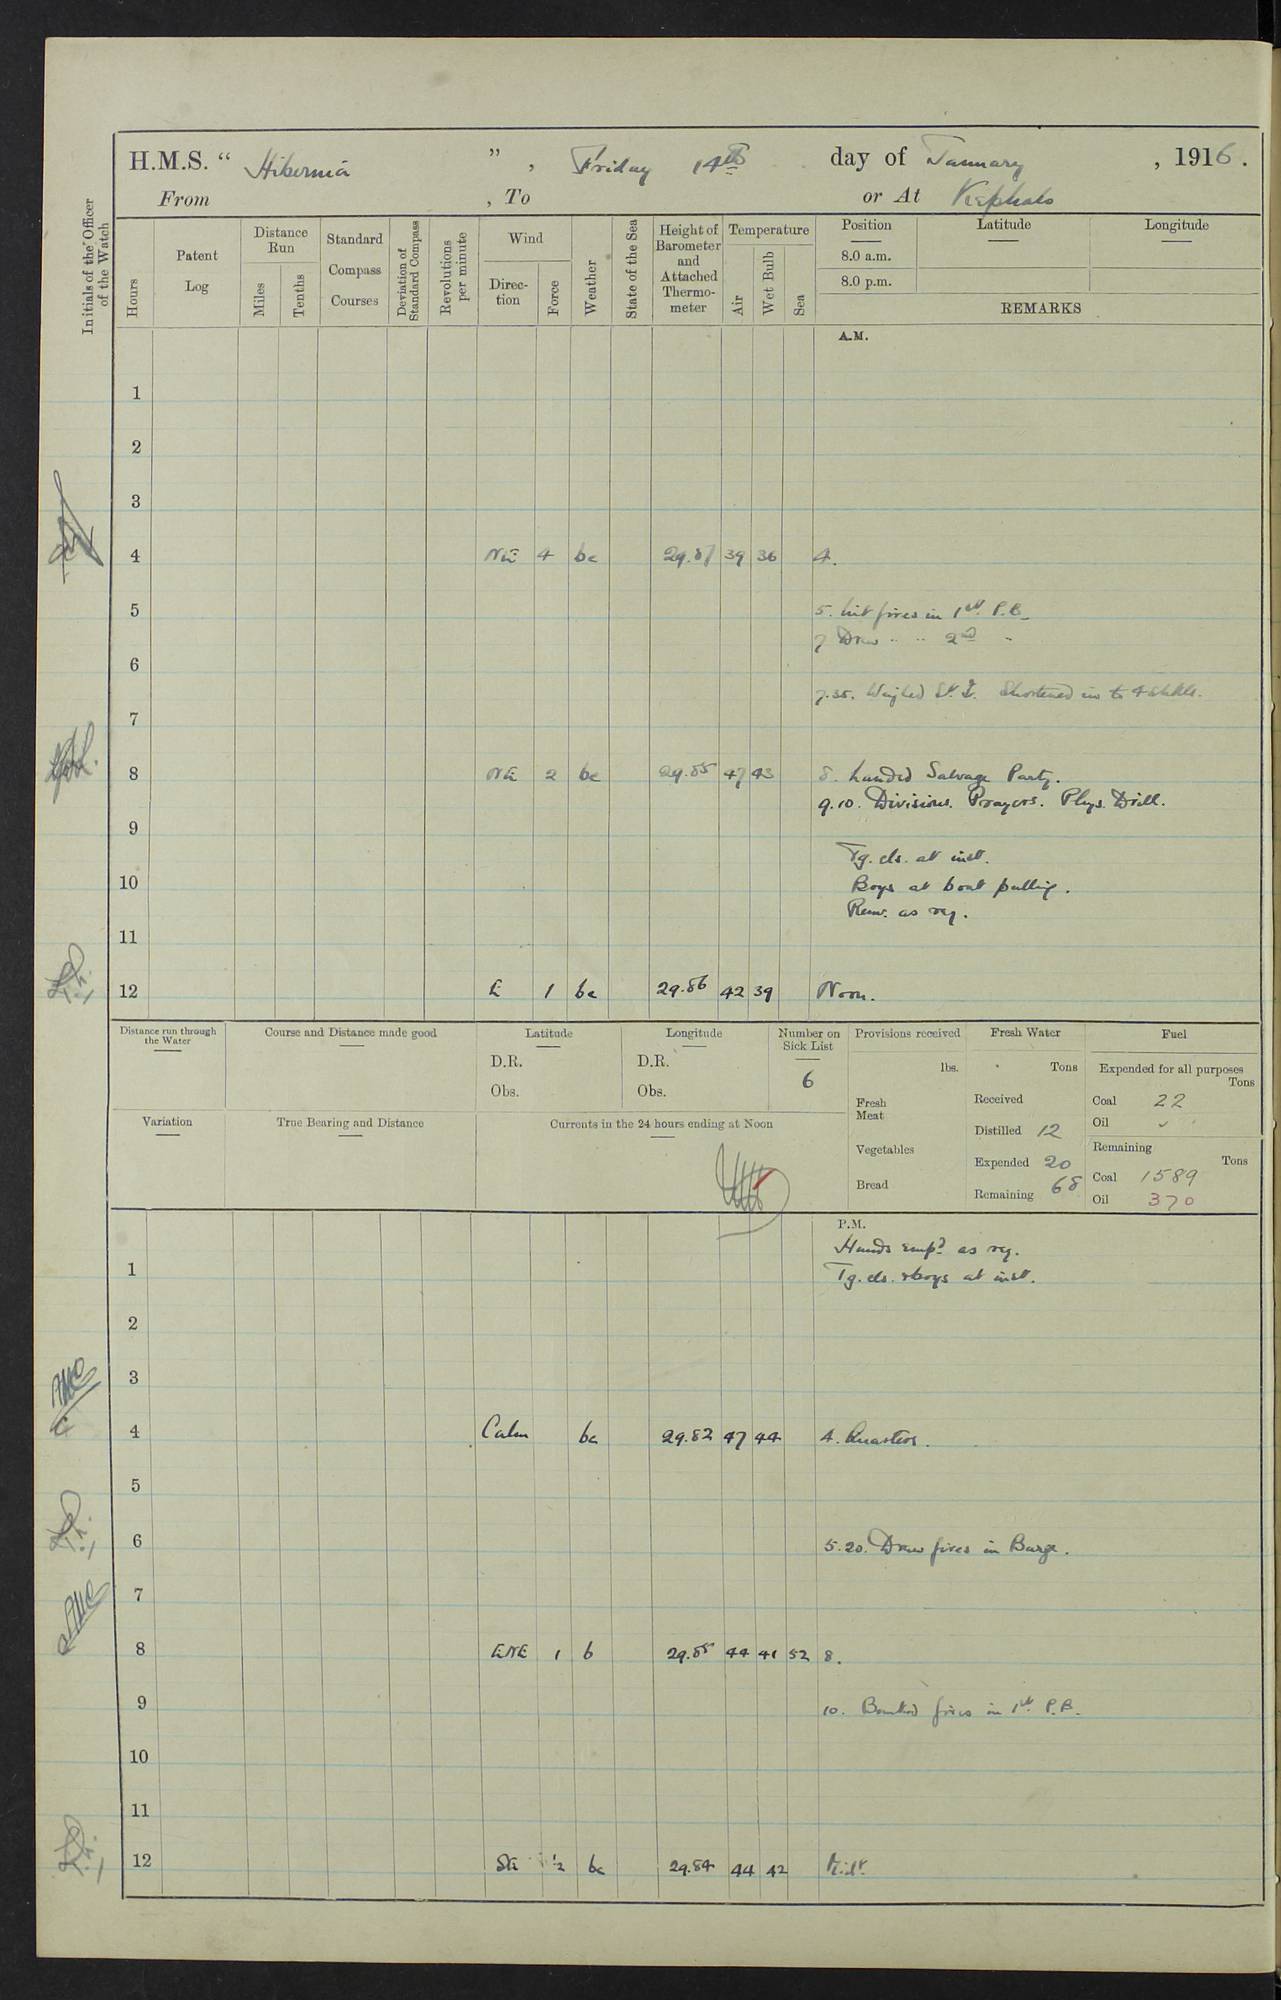 H.M.S. “ Hibernia ” , Friday 14th day of January , 1916 .
From , To or At Kephalo
Initials of the Officer of the Watch
Hours
Patent Log
Distance Run
Miles
Tenths
Standard Compass Courses
Deviation of Standard Compass
Revolutions per minute
Wind
Direc-tion
Force
Weather
State of the Sea
Height of Barometer and Attached Thermo-meter
Temperature
Air
Wet Bulb
Sea
Position
Latitude
Longitude
8.0 a.m.
8.0 p.m.
REMARKS
A.M.
1
2
3
4 NE 4 bc 29.87 39 36 4.
5 5. Lit fires in 1st P.B.
7 Draw " " 2nd "
6
7.35. Weighed St. Shortened in to 4 shkls.
7
8 NE 2 bc 29.85 47 43 8. Landed Salvage Party.
9.10. Divisions. Prayers. Phys. Drill.
9
Tg. cls. at inst.
10 Boys at boat pulling.
Rem. as req.
11
12 E 1 bc 29.86 42 39 Noon.
Distance run through the Water
Course and Distance made good
Latitude
D.R.
Obs.
Longitude
D.R.
Obs.
Number on Sick List
6
Provisions received
lbs.
Fresh Meat
Vegetables
Bread
Fresh Water
Tons
Received
Distilled 12
Expended 20
Remaining 68
Fuel
Expended for all purposes
Tons
Coal 22
Oil
Remaining
Tons
Coal 1589
Oil 370
Variation
True Bearing and Distance
Currents in the 24 hours ending at Noon
P.M.
Hands empd as req.
1 Tg. cls. & boys at inst.
2
3
4 Calm bc 29.82 47 44 4. Quarters.
5
6 5.20. Draw fires in Barge.
7
8 ENE 1 b 29.85 44 41 52 8.
9 10. Banked fires in 1st P.B.
10
11
12 SE ½ bc 29.84 44 42 Midt.